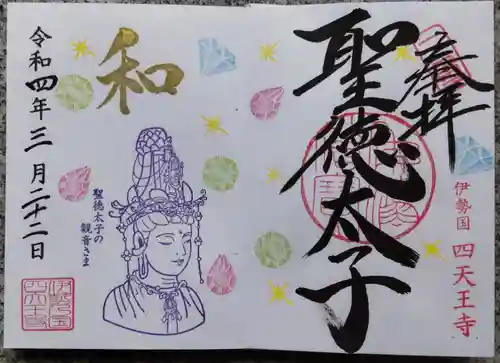 奉拝
聖徳太子
伊勢国 四天王寺
和
聖徳太子の
観音さま
令和四年三月二十二日